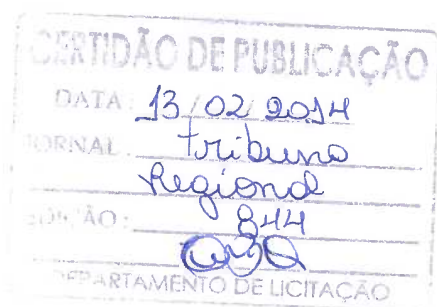 CERTIDÃO DE PUBLICAÇÃO
DATA: 13/02/2014
JORNAL: Tribuna
Regional
EDIÇÃO: 844
DEPARTAMENTO DE LICITAÇÃO